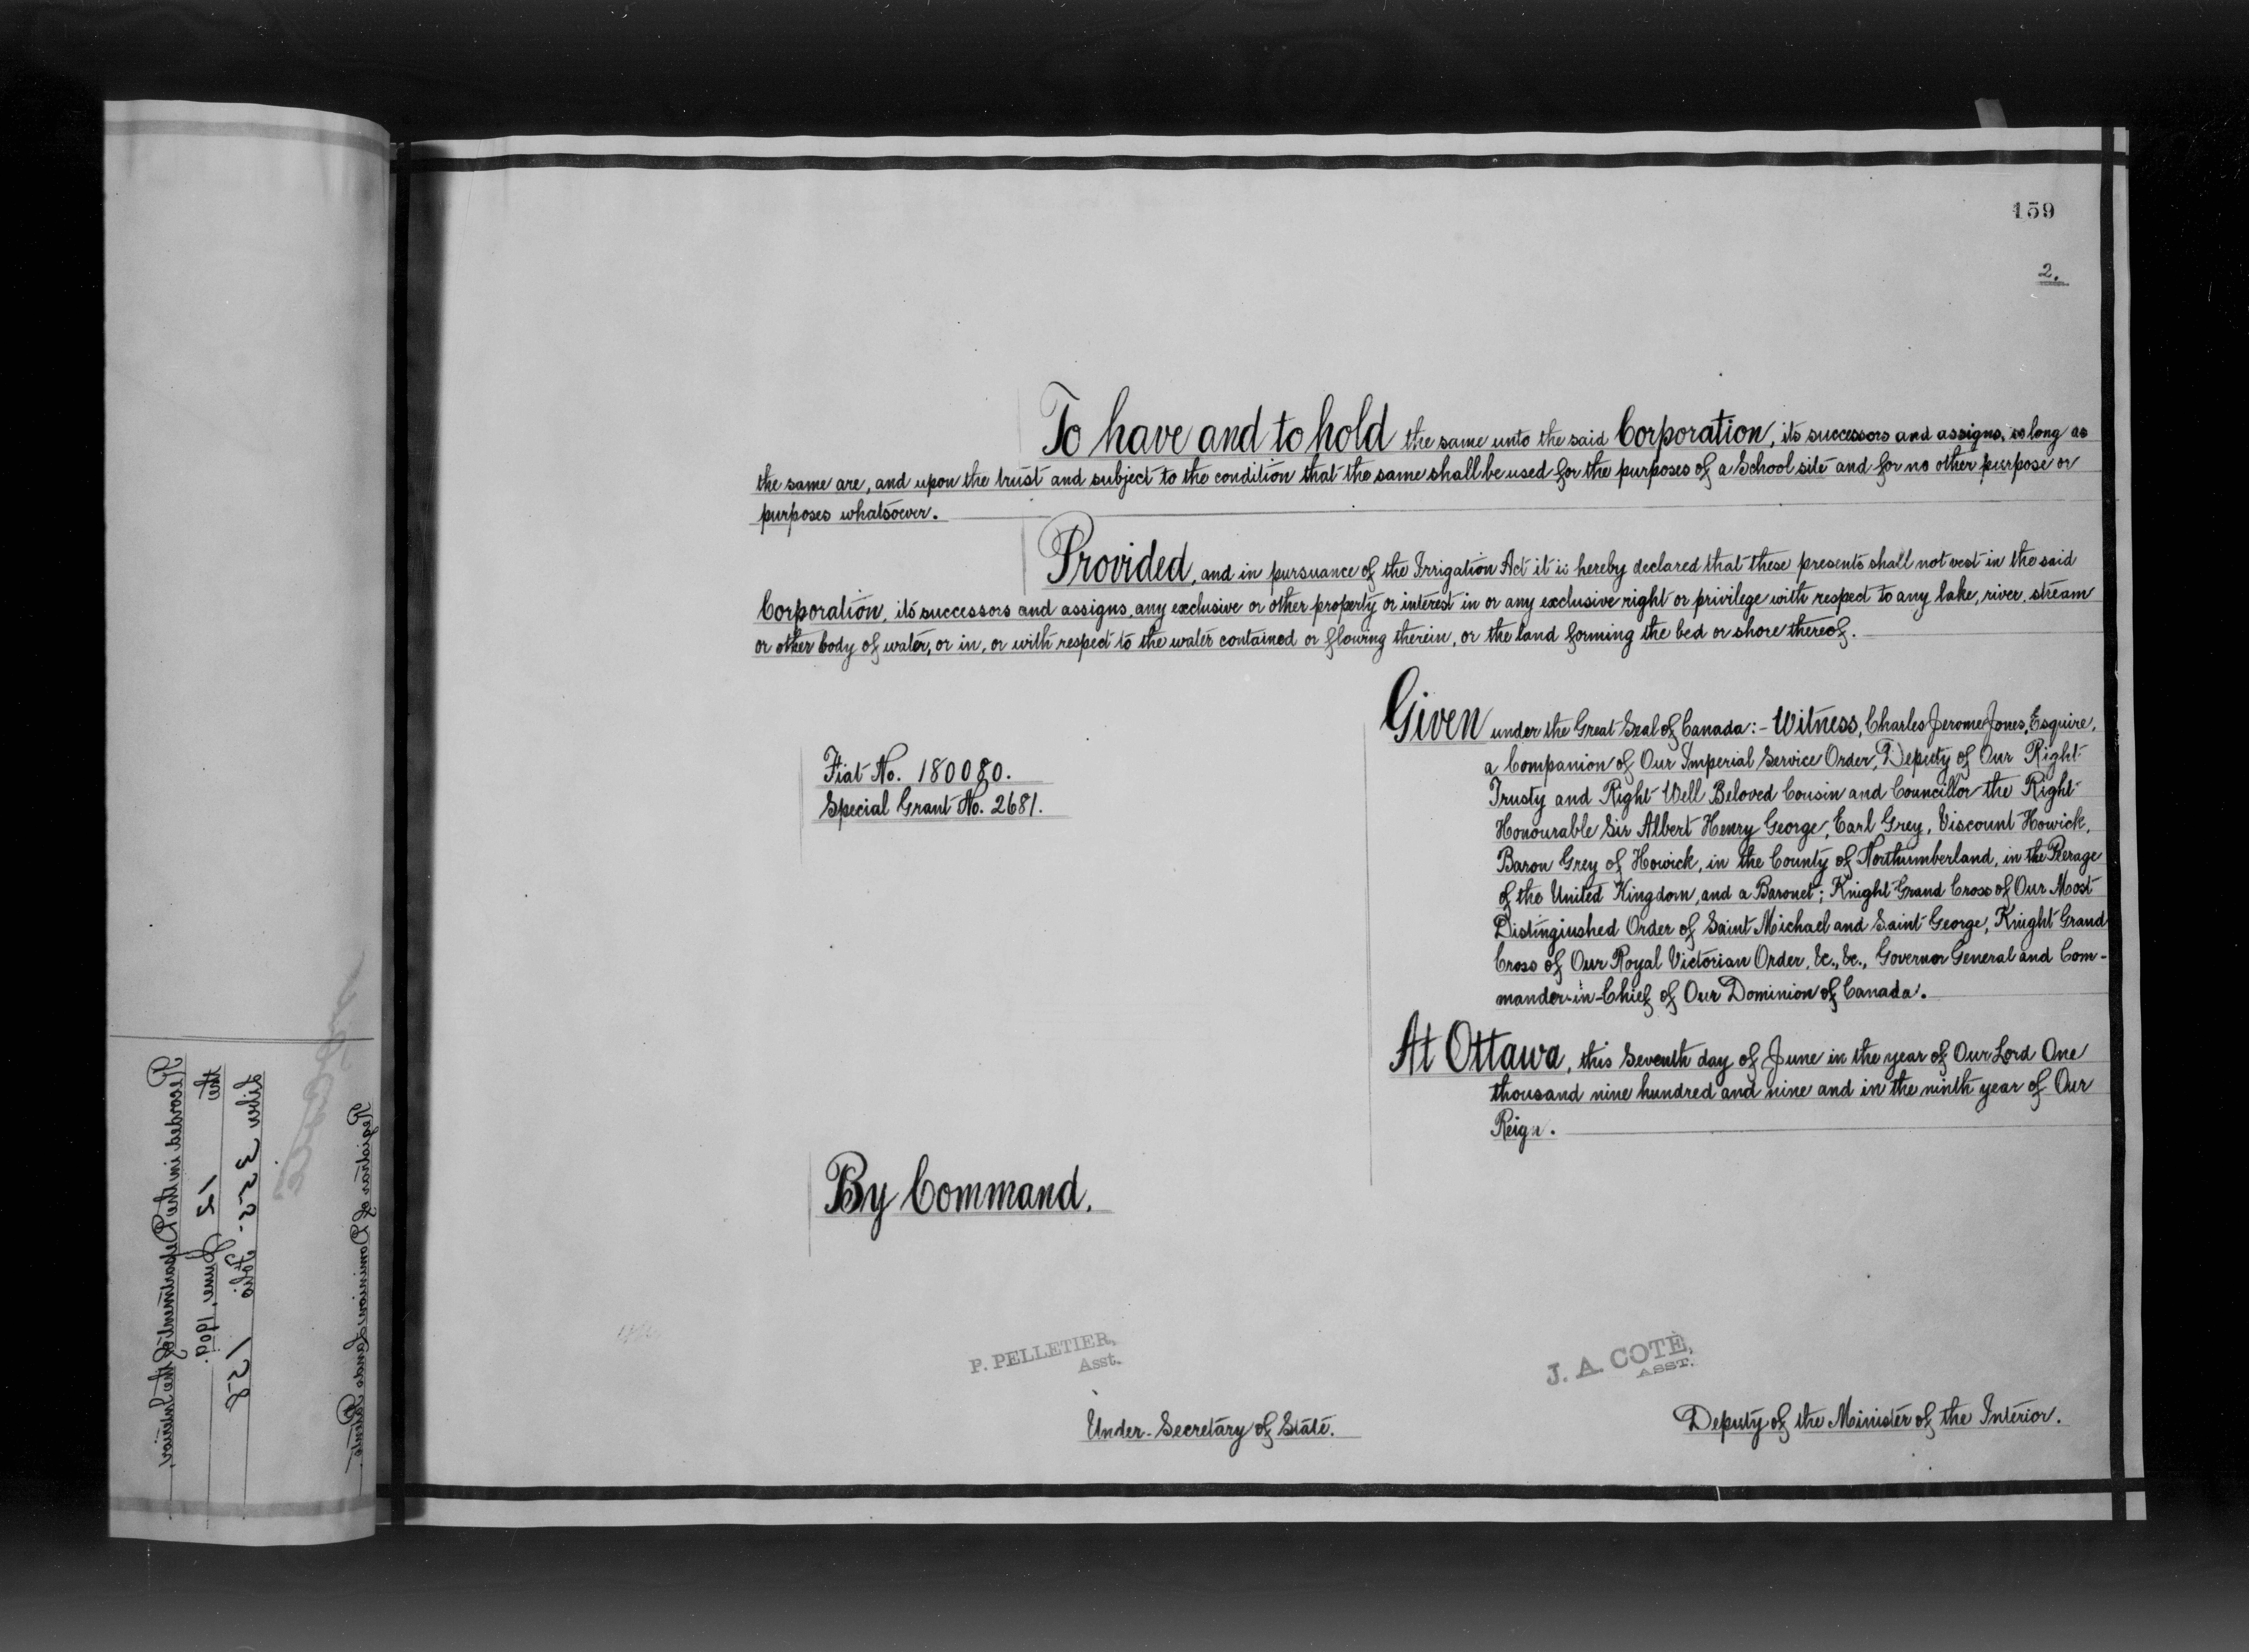 159
2.
To have and to hold the same unto the said Corporation, its successors and assigns, so long as
the same are, and upon the trust and subject to the condition that the same shall be used for the purposes of a School site and for no other purpose or
purposes whatsoever.
Provided, and in pursuance of the Irrigation Act it is hereby declared that these presents shall not vest in the said
Corporation, its successors and assigns, any exclusive or other property or interest in or any exclusive right or privilege with respect to any lake, river, stream
or other body of water, or in, or with respect to the water contained or flowing therein, or the land forming the bed or shore thereof.
Given under the Great Seal of Canada:- Witness, Charles Jerome Jones, Esquire,
a Companion of Our Imperial Service Order, Deputy of Our Right
Trusty and Right Well Beloved Cousin and Councillor the Right
Honourable Sir Albert Henry George, Earl Grey, Viscount Howick,
Baron Grey of Howick, in the County of Northumberland, in the Peerage
of the United Kingdom, and a Baronet; Knight Grand Cross of Our Most
Distinguished Order of Saint Michael and Saint George, Knight Grand
Cross of Our Royal Victorian Order, &c., &c., Governor General and Com-
mander-in-Chief of Our Dominion of Canada.
At Ottawa, this Seventh day of June in the year of Our Lord One
thousand nine hundred and nine and in the ninth year of Our
Reign.
Fiat No. 180080.
Special Grant No. 2681.
By Command.
P. PELLETIER,
Asst.
Under-Secretary of State.
J. A. COTÉ,
ASST.
Deputy of the Minister of the Interior.
Recorded in the Department of the Interior,
this 12 June, 1909.
Liber 335. Folio 158
Registrar of Dominion Lands Patents.